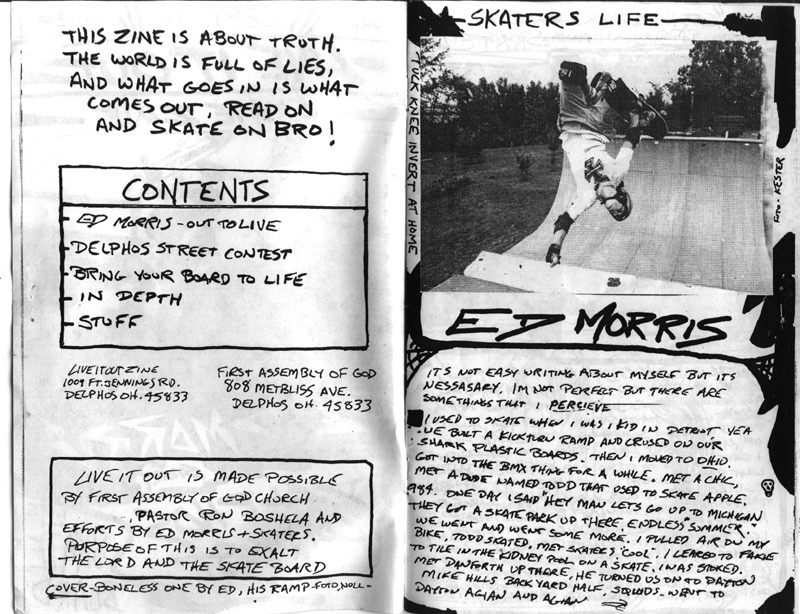 THIS ZINE IS ABOUT TRUTH.
THE WORLD IS FULL OF LIES,
AND WHAT GOES IN IS WHAT
COMES OUT, READ ON
AND SKATE ON BRO!
CONTENTS
- ED MORRIS - OUT TO LIVE
- DELPHOS STREET CONTEST
- BRING YOUR BOARD TO LIFE
- IN DEPTH
- STUFF
LIVE IT OUT ZINE
1009 FT. JENNINGS RD.
DELPHOS OH. 45833
FIRST ASSEMBLY OF GOD
808 METBLISS AVE.
DELPHOS OH. 45833
LIVE IT OUT IS MADE POSSIBLE
BY FIRST ASSEMBLY OF GOD CHURCH
, PASTOR RON BOSHELA AND
EFFORTS BY ED MORRIS + SKATERS.
PURPOSE OF THIS IS TO EXALT
THE LORD AND THE SKATE BOARD
COVER-BONELESS ONE BY ED, HIS RAMP-FOTO, NOLL-
SKATERS LIFE
TUCK KNEE INVERT AT HOME
FOTO - KESTER
ED MORRIS
IT'S NOT EASY WRITING ABOUT MYSELF BUT ITS
NESSASARY. IM NOT PERFECT BUT THERE ARE
SOMETHINGS THAT I PERCIEVE
I USED TO SKATE WHEN I WAS I KID IN DETROIT YEA
WE BUILT A KICKTURN RAMP AND CRUSED ON OUR
SHARK PLASTIC BOARDS. THEN I MOVED TO OHIO.
GOT INTO THE BMX THING FOR A WHILE. MET A CHIC,
MET A DUDE NAMED TODD THAT USED TO SKATE APPLE.
984. ONE DAY I SAID "HEY MAN LETS GO UP TO MICHIGAN
THEY GOT A SKATE PARK UP THERE, ENDLESS SUMMER".
WE WENT AND WENT SOME MORE. I PULLED AIR ON MY
BIKE, TODD SKATED, MET SKATERS "COOL". I LEARED TO FAKIE
TO TILE IN THE KIDNEY POOL ON A SKATE. I WAS STOKED.
MET DANFORTH UP THERE, HE TURNED US ON TO DAYTON
MIKE HILLS BACK YARD HALF, SQUIDS. WENT TO
DAYTON AGIAN AND AGIAN